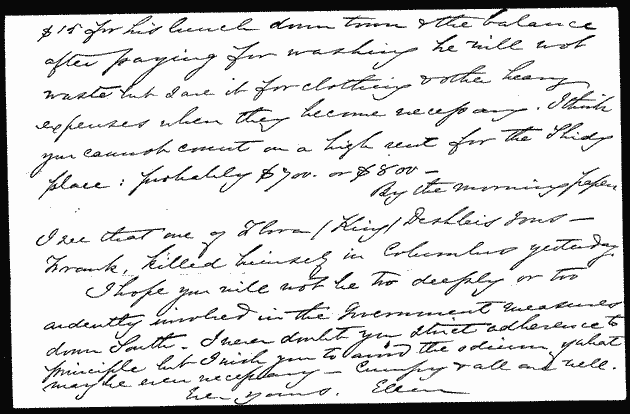 $15 for his lunch down town & the balance
after paying for washing he will not
waste but save it for clothing & other heavy
expenses when they become necessary. I think
you cannot count on a high rent for the
place: probably $700. or $800 —
By the morning paper
I see that one of Flora (King) Deshler's sons —
Frank, killed himself in Columbus yesterday.
I hope you will not be too deeply or too
ardently involved in the Government measures
down South. I never doubt your strict adherence to
principle but I wish you to avoid the odium of what
may be even necessary — & all are well.
Ever yours. Ellen